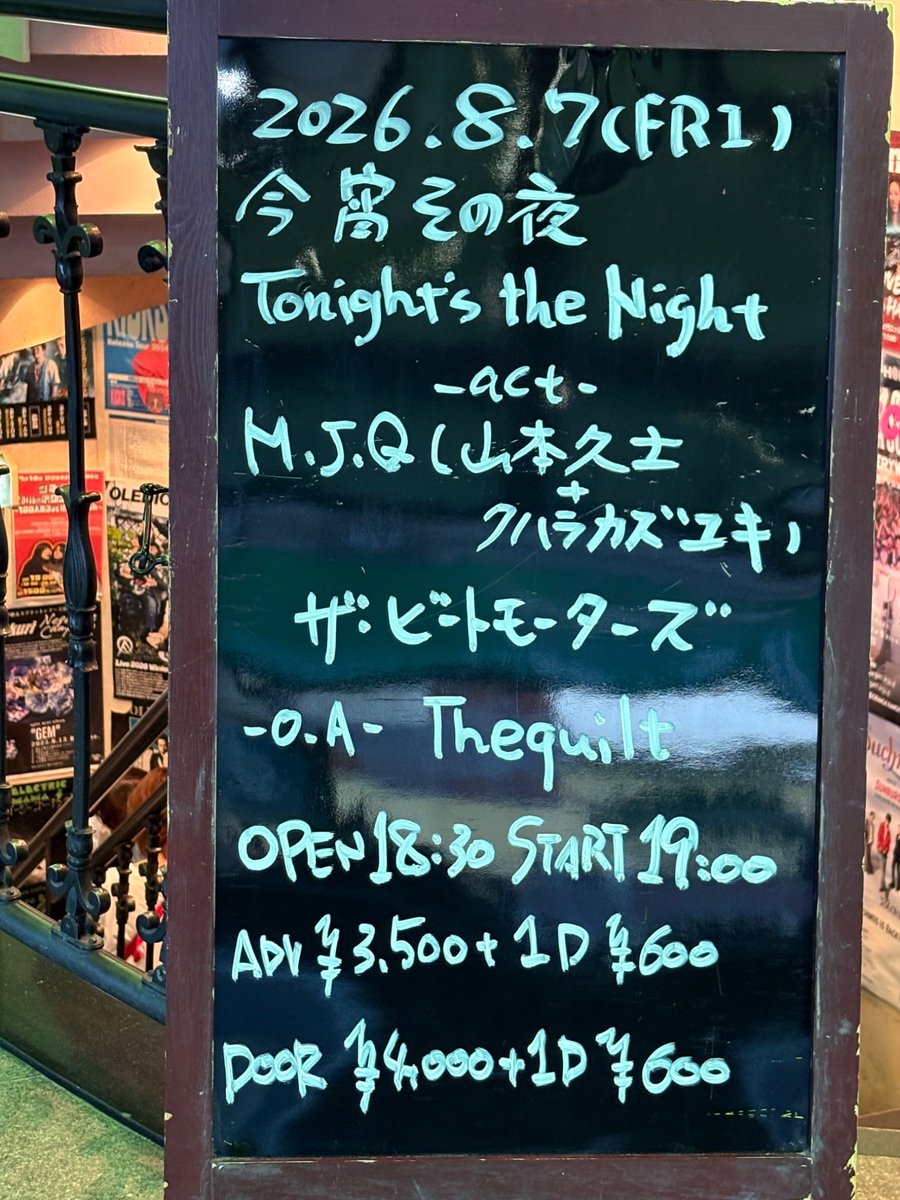 2026.8.7(FRI)
今宵その夜
Tonight's the Night
-act-
M.J.Q(山本久士
+
クハラカズユキ)
ザ・ビートモーターズ
-O.A- Thequilt
OPEN18:30 START 19:00
ADV ¥3.500+1D ¥600
DOOR ¥4,000+1D ¥600
Release Tour
OLEDIC
Live 2026 Winter
"GEM"
ELECTRIC
MAMA